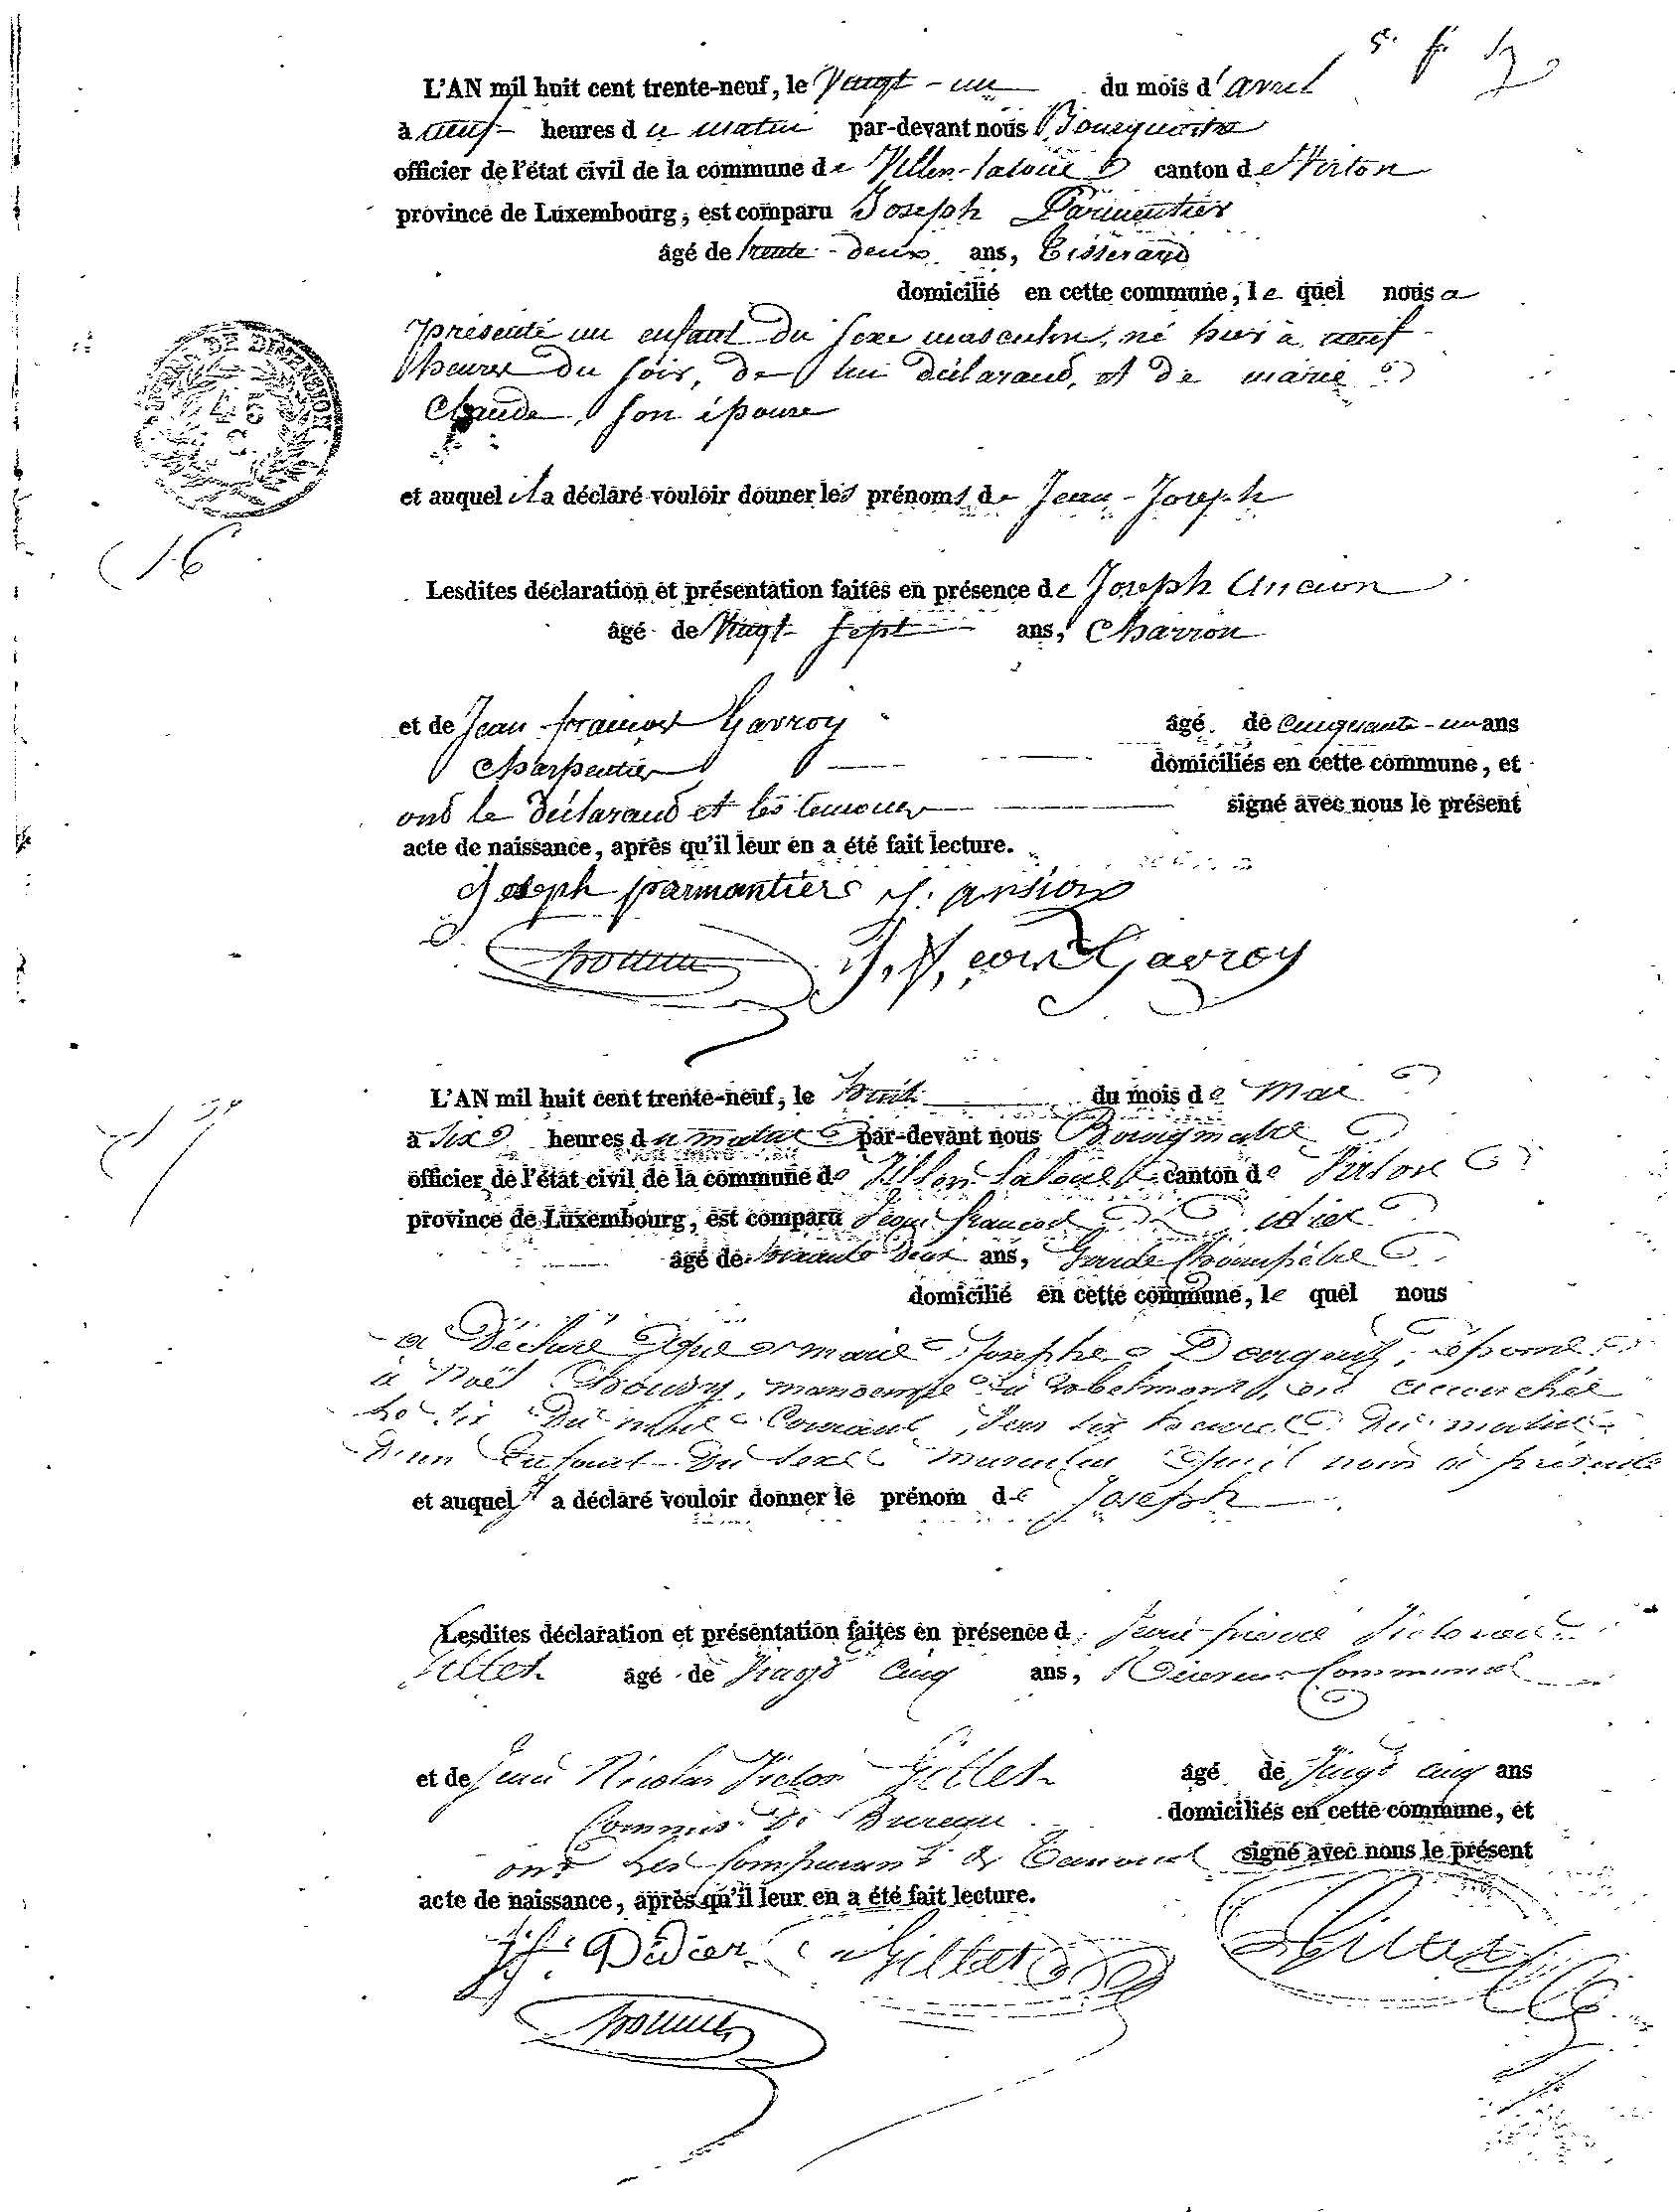 5. f. 
L'AN mil huit cent trente-neuf, le Vingt-un du mois d'avril
à neuf heures du matin par-devant nous Bourgmestre
officier de l'état civil de la commune de Villers-la-loue canton de Virton
province de Luxembourg, est comparu Joseph Parmentier
âgé de trente-deux ans, Tisserand
domicilié en cette commune, lequel nous a
présenté un enfant du sexe masculin, né hier à neuf
heures du soir, de lui déclarant, et de marie
Claude, son épouse
TIMBRE DE DIMENSION
45
C.
et auquel il a déclaré vouloir donner les prénoms de Jean-Joseph
16
Lesdites déclaration et présentation faites en présence de Joseph Ancion
âgé de Vingt Sept ans, Charron
et de Jean françois Gavroy âgé de cinquante-un ans
Charpentier domiciliés en cette commune, et
ont le déclarant et les temoins signé avec nous le présent
acte de naissance, après qu'il leur en a été fait lecture.
Joseph parmantier J. ansion
J. f. Gavroy
L'AN mil huit cent trente-neuf, le huit du mois de Mai
à Six heures du matin par-devant nous Bourgmestre
officier de l'état civil de la commune de Villers Laloue canton de Virton
province de Luxembourg, est comparu Jean françois Didier
âgé de Deux ans, Garde Champêtre
domicilié en cette commune, lequel nous
a Déclaré que marie Josephe épouse
à Noël à Robelmont, est accouchée
le six Du mois Courant, vers six heures Du matin
D'un Enfant Du sexe Masculin qu'il nous à présenté
et auquel il a déclaré vouloir donner le prénom de Joseph
Lesdites déclaration et présentation faites en présence de Jean-pierre
Gillet âgé de Vingt Cinq ans, Receveur Communal
et de Jean Nicolas Victor Gillet âgé de Vingt cinq ans
Commis De Bureau domiciliés en cette commune, et
ont Les Comparant et Temoins signé avec nous le présent
acte de naissance, après qu'il leur en a été fait lecture.
J. f. Didier Gillet